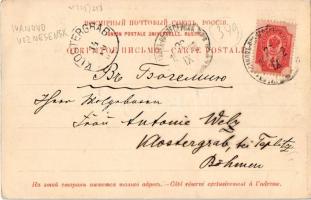 IVANOVO
VOZNESENSK
ВСЕМІРНЫЙ ПОЧТОВЫЙ СОЮЗЪ. РОССІЯ.
UNION POSTALE UNIVERSELLE. RUSSIE.
ОТКРЫТОЕ ПИСЬМО. CARTE POSTALE.
KLOSTERGRAB
349
Въ Богемію
Herrn Wolgeboren
Frau Antonie Welz
Klostergrab, bei Teplitz
Böhmen
На этой сторонѣ пишется только адресъ. — Côté réservé exclusivement à l'adresse.